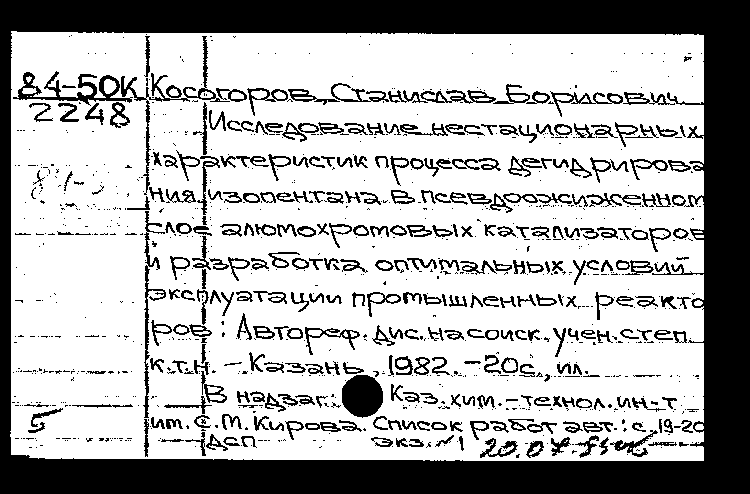 84-50К Косогоров, Станислав Борисович
2248
Исследование нестационарных
характеристик процесса дегидрирова
ния изопентана в псевдоожиженном
слое алюмохромовых катализаторов
и разработка оптимальных условий
эксплуатации промышленных реакто
ров : Автореф. дис. на соиск. учен. степ.
к.т.н. – Казань, 1982. – 20с., ил.
В надзаг.: Каз. хим.-технол. ин-т
5 им. С.М. Кирова. Список работ авт.: с. 19-20
ДСП экз. №1 20.04